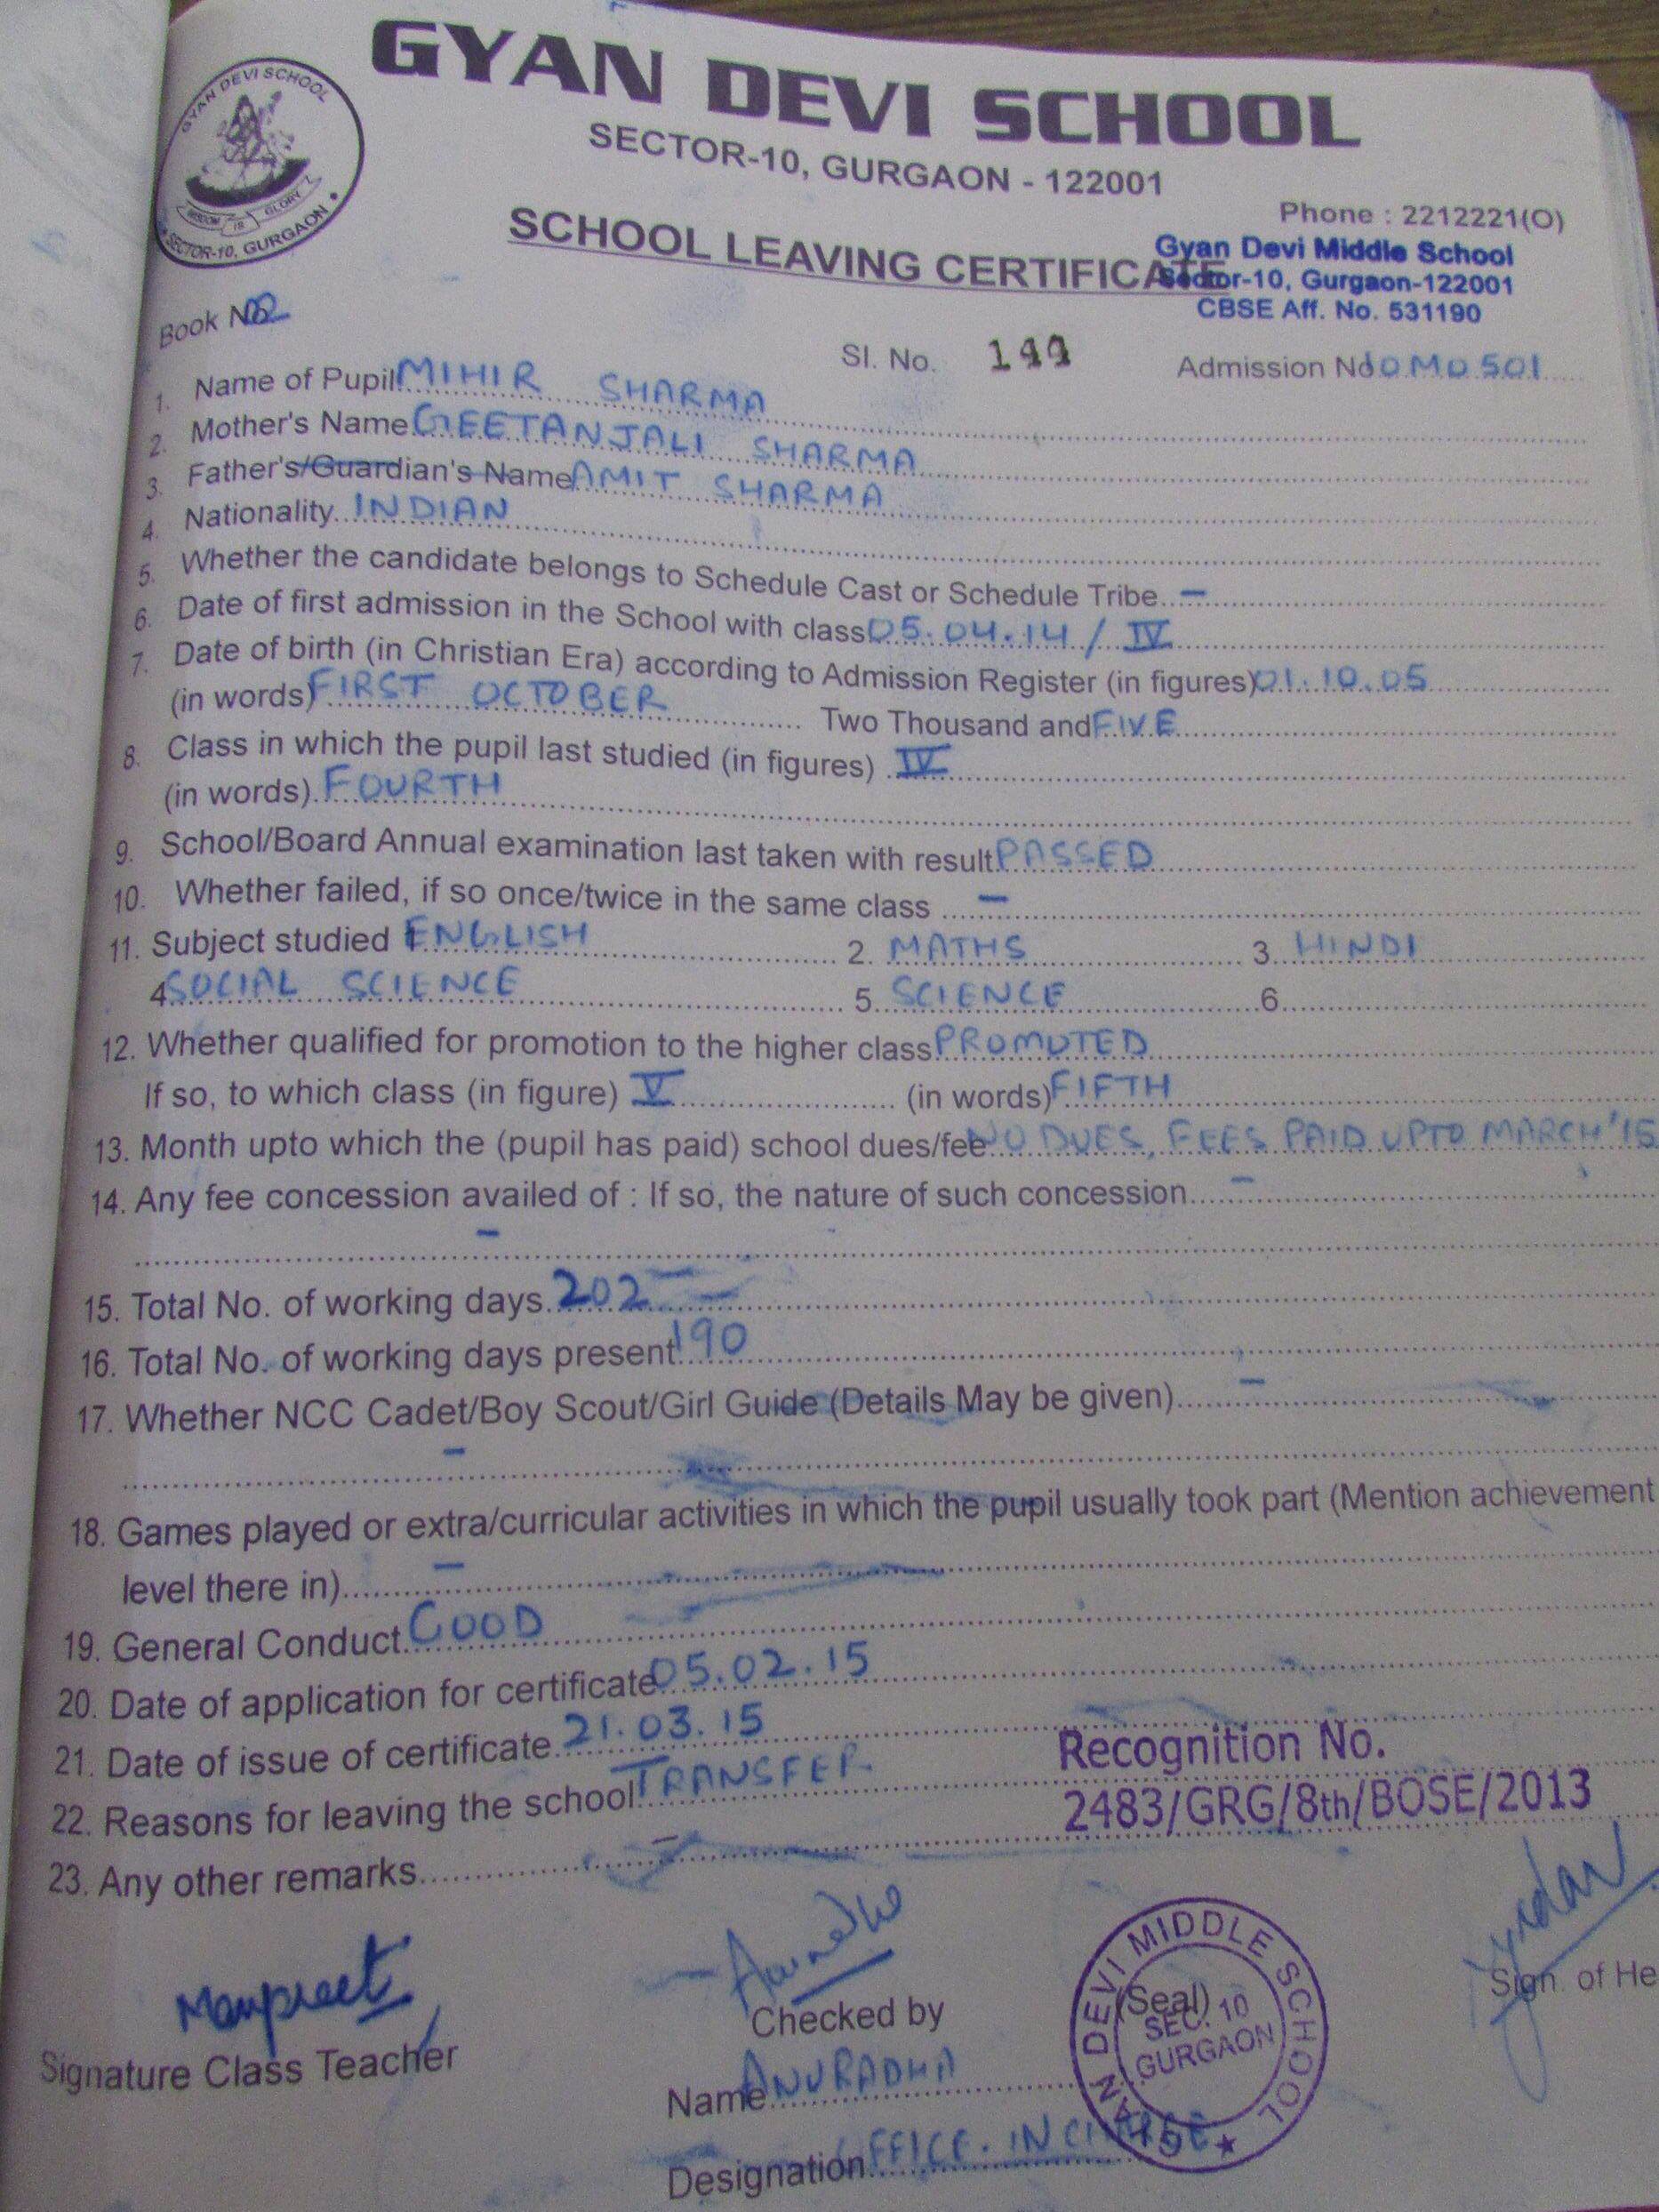 GYAN DEVI SCHOOL
GYAN DEVI SCHOOL
WISDOM IS GLORY
SECTOR-10, GURGAON
SECTOR-10, GURGAON - 122001
Phone : 2212221(O)
SCHOOL LEAVING CERTIFICATE
Gyan Devi Middle School
Sector-10, Gurgaon-122001
CBSE Aff. No. 531190
Book No. 02
Sl. No. 144 Admission No. 10MD501
1. Name of Pupil MIHIR SHARMA
2. Mother's Name GEETANJALI SHARMA
3. Father's/Guardian's Name AMIT SHARMA
4. Nationality INDIAN
5. Whether the candidate belongs to Schedule Cast or Schedule Tribe -
6. Date of first admission in the School with class 05.04.14 / IV
7. Date of birth (in Christian Era) according to Admission Register (in figures) 01.10.05
(in words) FIRST OCTOBER Two Thousand and FIVE
8. Class in which the pupil last studied (in figures) IV
(in words) FOURTH
9. School/Board Annual examination last taken with result PASSED
10. Whether failed, if so once/twice in the same class -
11. Subject studied ENGLISH 2. MATHS 3. HINDI
4. SOCIAL SCIENCE 5. SCIENCE 6.
12. Whether qualified for promotion to the higher class PROMOTED
If so, to which class (in figure) V (in words) FIFTH
13. Month upto which the (pupil has paid) school dues/fee NO DUES, FEES PAID UPTO MARCH'15
14. Any fee concession availed of : If so, the nature of such concession -
-
15. Total No. of working days 202
16. Total No. of working days present 190
17. Whether NCC Cadet/Boy Scout/Girl Guide (Details May be given) -
-
18. Games played or extra/curricular activities in which the pupil usually took part (Mention achievement
level there in) -
19. General Conduct GOOD
20. Date of application for certificate 05.02.15
21. Date of issue of certificate 21.03.15
22. Reasons for leaving the school TRANSFER.
Recognition No.
2483/GRG/8th/BOSE/2013
23. Any other remarks -
Manpreet
Signature Class Teacher
Checked by
Name ANURADHA
Designation OFFICE. INCHARGE
GYAN DEVI MIDDLE SCHOOL
(Seal)
SEC. 10
GURGAON
Sign. of He